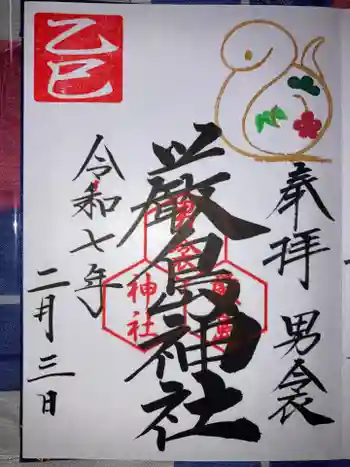 乙巳
奉拝 男衾
厳島神社
令和七年
二月三日
神社